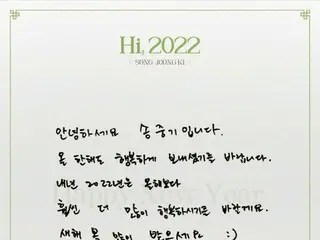 Hi, 2022
SONG JOONG KI
안녕하세요 송중기입니다.
올 한해도 행복하게 보내셨기를 바랍니다.
내년 2022년은 올해보다
훨씬 더 많이 행복하시기를 바랄게요.
새해 복 많이 받으세요 :)
Happy New Year